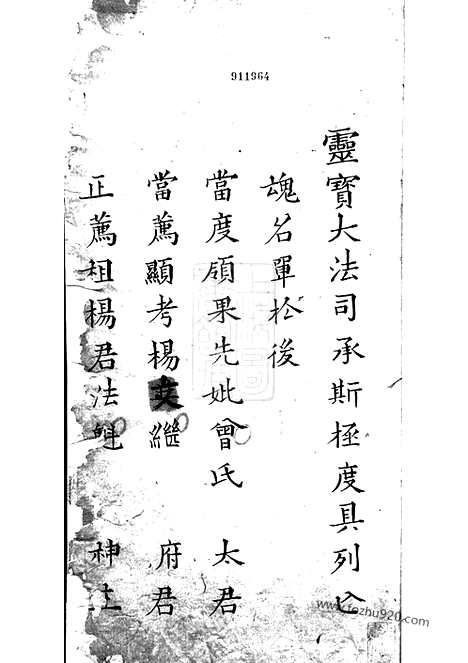 911964
靈寶大法司承斯拯度具列亾
魂名單於後
當度領果先妣曾氏 太君
當薦顯考楊 繼 府君
正薦祖楊君法魁 神主
www.fozhu920.com